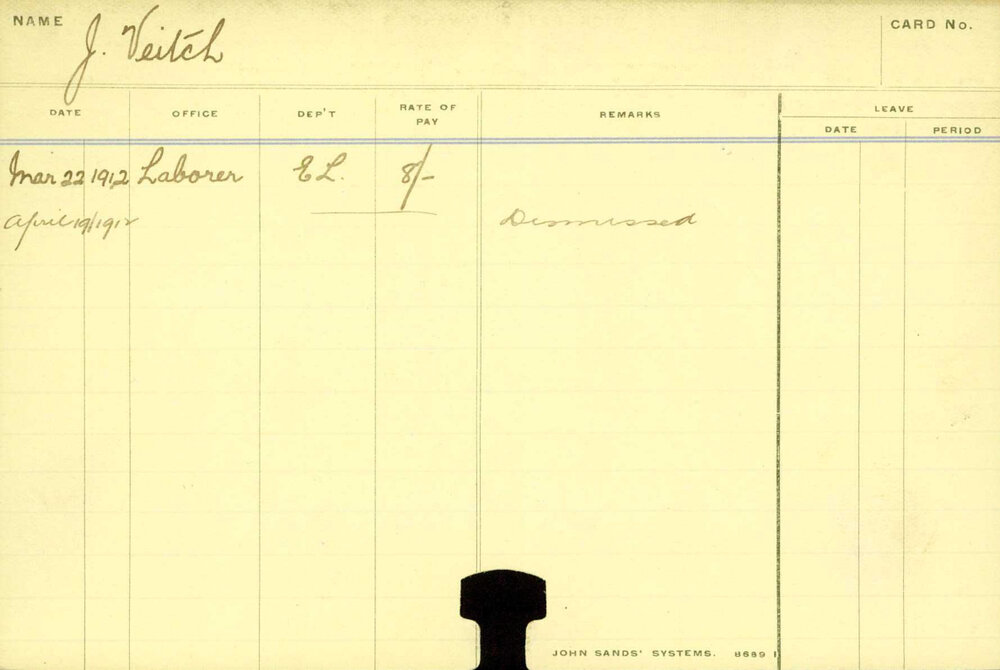 NAME J. Veitch CARD No.
DATE OFFICE DEP'T RATE OF PAY REMARKS LEAVE
DATE PERIOD
Mar 22 1912 Laborer EL. 8/-
April 19/1912 Dismissed
JOHN SANDS' SYSTEMS. 8689